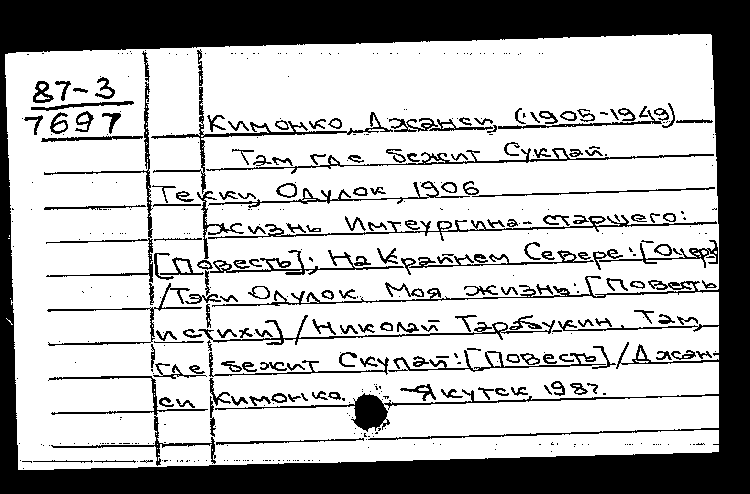 87-3
7697
Кимонко, Джанси, (1905-1949)
Там, где бежит Сукпай.
Текки, Одулок, 1906
Жизнь Имтеургина-старшего:
[Повесть]; На Крайнем Севере: [Очерк]
/Тэки Одулок. Моя жизнь: [Повесть
и стихи] / Николай Тарабукин. Там,
где бежит Скупай: [Повесть] / Джан-
си Кимонко. - Якутск, 1987.